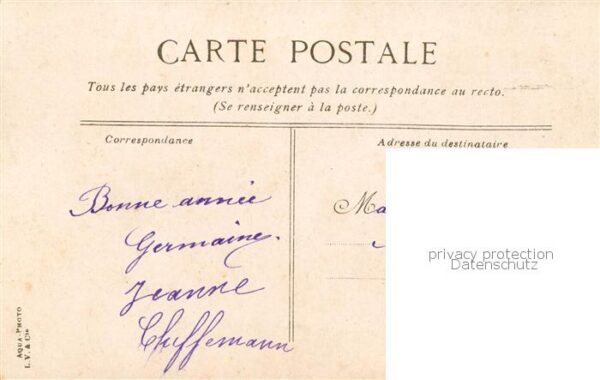 CARTE POSTALE
Tous les pays étrangers n'acceptent pas la correspondance au recto.
(Se renseigner à la poste.)
Correspondance
Adresse du destinataire
Bonne année
Germaine.
Jeanne
Ma
privacy protection
Datenschutz
AQUA-PHOTO
L.V. & Cie